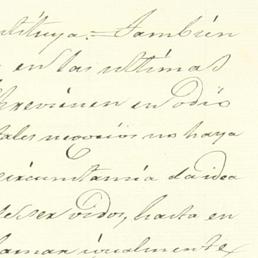 tituya. = También
en las ultimas
previenen en odio
tales negocios no haya
circunstancia da idea
desser vidos, hasta en
lamar igualmente